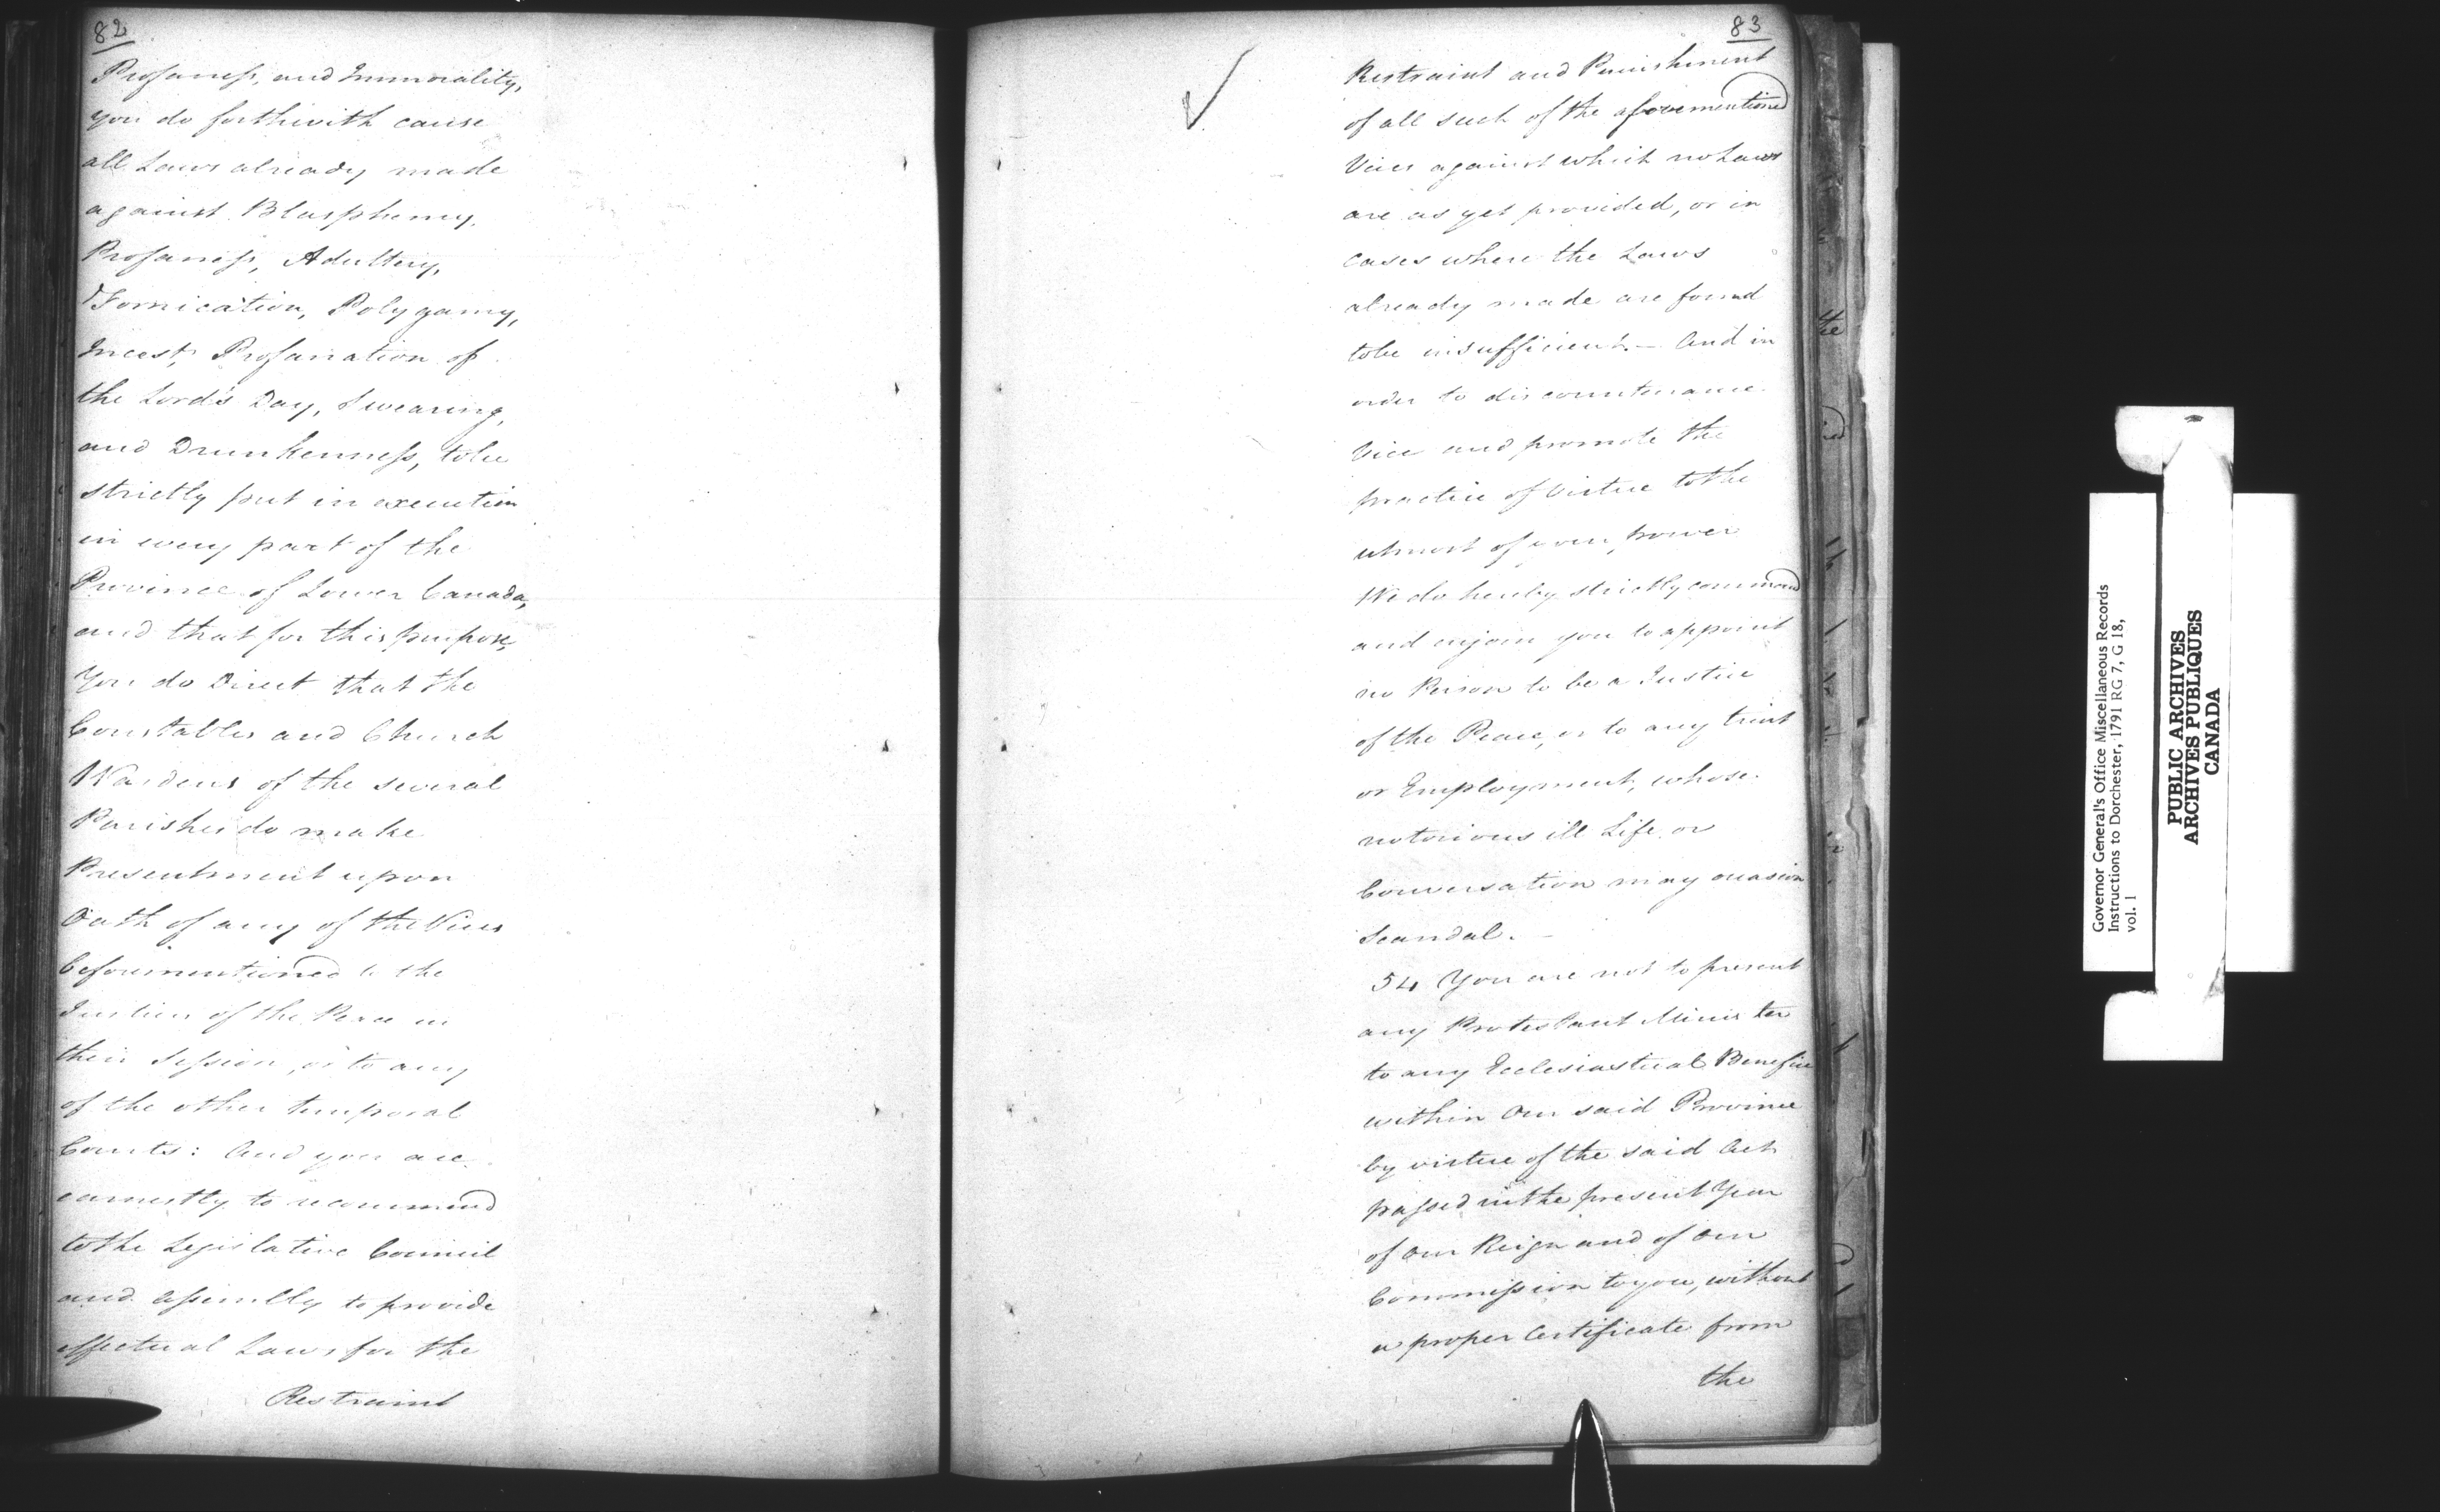 82
Profaness, and Immorality,
you do forthwith cause
all Laws already made
against Blasphemy,
Profaness, Adultery,
Fornication, Polygamy,
Incest, Profanation of
the Lord's Day, Swearing,
and Drunkenness, tobe
strictly put in execution
in every part of the
Province of Lower Canada,
and that for this purpose,
You do Direct that the
Constables and Church
Wardens of the several
Parishes do make
Presentment upon
Oath of any of the Vices
beforementioned to the
Justices of the Peace in
their Session, or to any
of the other temporal
Courts: And you are
earnestly to recommend
tothe Legislative Council
and Assembly to provide
effectual Laws for the
Restraint
83
Restraint and Punishment
of all such of the aforementioned
Vices against which no Laws
are as yet provided, or in
cases where the Laws
already made are found
tobe insufficient. — And in
order to discountenance
Vice and promote the
practice of Virtue tothe
utmost of power
We do hereby strictly command
and enjoin you to appoint
no Person to be a Justice
of the Peace, or to any trust
or Employment, whose
notorious ill Life or
Conversation may occasion
Scandal. —
54 You are not to present
any Protestant Minister
to any Ecclesiastical Benefice
within Our said Province
by virtue of the said Act
passed in the present Year
of Our Reign and of Our
Commission to you, without
a proper Certificate from
the
Governor General's Office Miscellaneous Records
Instructions to Dorchester, 1791 RG 7, G 18,
vol. 1
PUBLIC ARCHIVES
ARCHIVES PUBLIQUES
CANADA